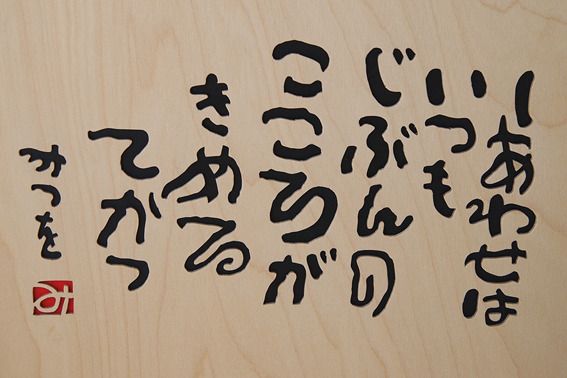 しあわせは
いつも
じぶんの
こころが
きめる
てがつ
みつを
み